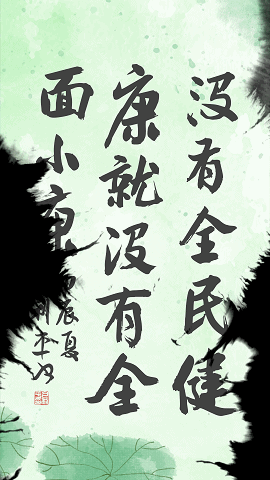 没有全民健
康就没有全
面小康
辰夏